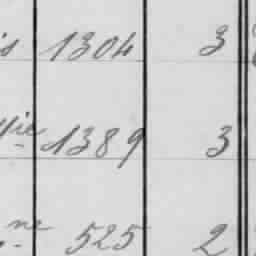 is 1304 3
1389 3
ne 525 2